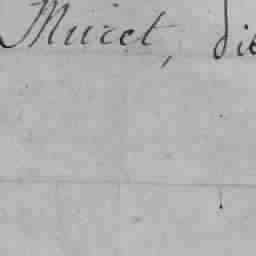 Muret, die